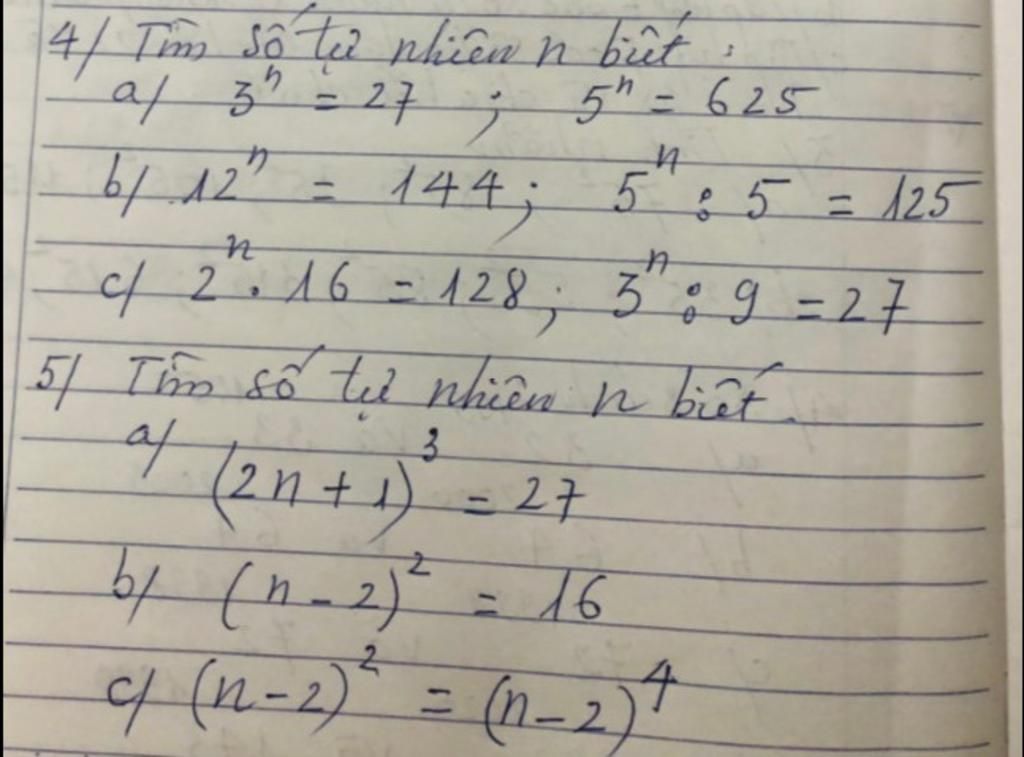 4/ Tìm số tự nhiên n biết :
a/ 3ⁿ = 27 ; 5ⁿ = 625
b/ 12ⁿ = 144 ; 5ⁿ : 5 = 125
c/ 2ⁿ . 16 = 128 ; 3ⁿ : 9 = 27
5/ Tìm số tự nhiên n biết.
a/ (2n + 1)³ = 27
b/ (n - 2)² = 16
c/ (n - 2)² = (n - 2)⁴